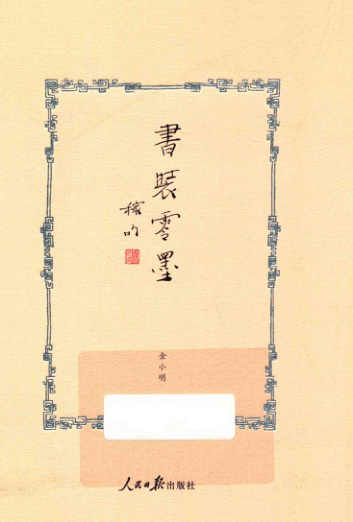 書裝零墨
穉吟
金小明
人民日报出版社